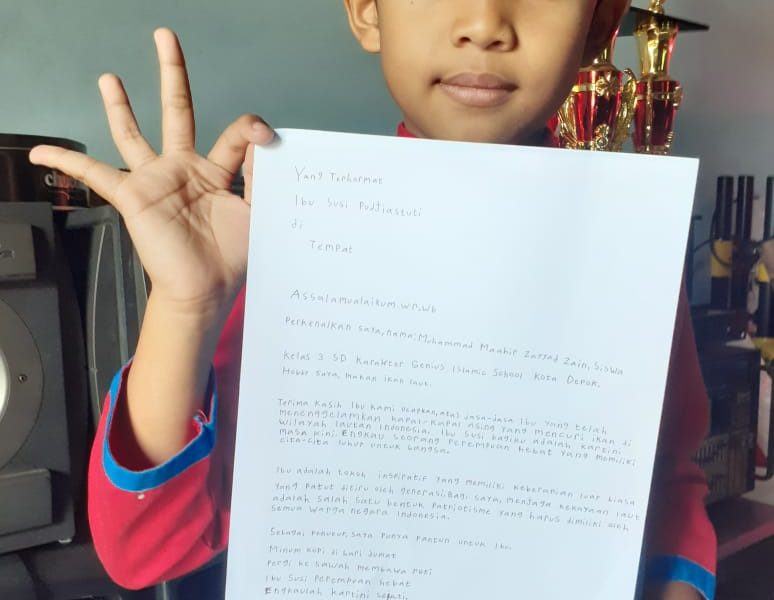 Yang Terhormat
Ibu Susi Pudjiastuti
di
Tempat
Assalamualaikum.wr.wb
Perkenalkan saya, nama: Muhammad Maahir Zayyad Zain, Siswa
Kelas 3 SD Karakter Genius Islamic School Kota Depok.
Hobby saya, makan ikan laut.
Terima kasih Ibu kami ucapkan, atas jasa-jasa Ibu yang telah
menenggelamkan kapal-kapal asing yang mencuri ikan di
wilayah lautan Indonesia. Ibu Susi bagiku adalah kartini
masa kini. Engkau seorang perempuan hebat yang memiliki
cita-cita luhur untuk bangsa.
Ibu adalah tokoh inspiratif yang memiliki keberanian luar biasa
yang patut ditiru oleh generasi. Bagi saya, menjaga kekayaan laut
adalah salah satu bentuk patriotisme yang harus dimiliki oleh
semua warga negara Indonesia.
Sebagai penutup, saya punya pantun untuk Ibu.
Minum kopi di hari Jumat
Pergi ke sawah membawa roti
Ibu Susi Perempuan hebat
Engkaulah kartini sejati.